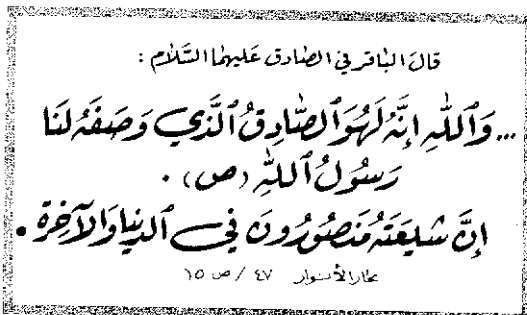 قَالَ البَاقر في الصَّادق عَليهمَا السَّلام :
... وَٱللَّهِ إِنَّهُ لَهُوَ ٱلصَّادِقُ ٱلَّذِي وَصَفَهُ لَنَا
رَسُولُ ٱللَّهِ (ص) .
إِنَّ شيعَتَهُ مَنصُورُونَ في ٱلدنيا وَالآخِرَة .
بحار الأنوار ٤٧ / ص ١٥